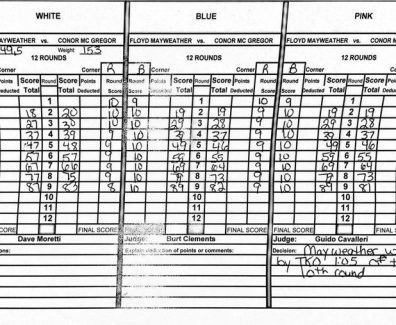 WHITE BLUE PINK
AYWEATHER vs. CONOR MC GREGOR FLOYD MAYWEATHER vs. CONOR MC GREGOR FLOYD MAYWEATHER vs. CONOR MC
49.5 Weight 153
12 ROUNDS 12 ROUNDS 12 ROUNDS
Corner R B Corner Corner R B Corner Corner
Points Score Round Score Points Round Round Points Score Round Score Points Round Round Points Score Round Score Points
Deducted Total Total Deducted Score Score Deducted Total Total Deducted Score Score Deducted Total Total Deducted
1 10 9 1 10 9 1
18 2 20 10 10 19 2 19 9 10 19 2 19
27 3 30 10 10 29 3 28 9 10 29 3 28
37 4 39 9 10 39 4 37 9 10 39 4 37
47 5 48 9 10 49 5 46 9 10 49 5 46
57 6 57 9 10 59 6 55 9 10 59 6 55
67 7 66 9 10 69 7 64 9 10 69 7 64
77 8 75 9 10 79 8 73 9 10 79 8 73
87 9 83 8 10 89 9 82 9 10 89 9 81
10 10 10
11 11 11
12 12 12
SCORE FINAL SCORE FINAL SCORE FINAL SCORE FINAL SCORE FINAL
Dave Moretti Judge: Burt Clements Judge: Guido Cavalleri
ons: Explain deduction of points or comments: Decision: Mayweather w
by TKO 1:05 of t
10th round